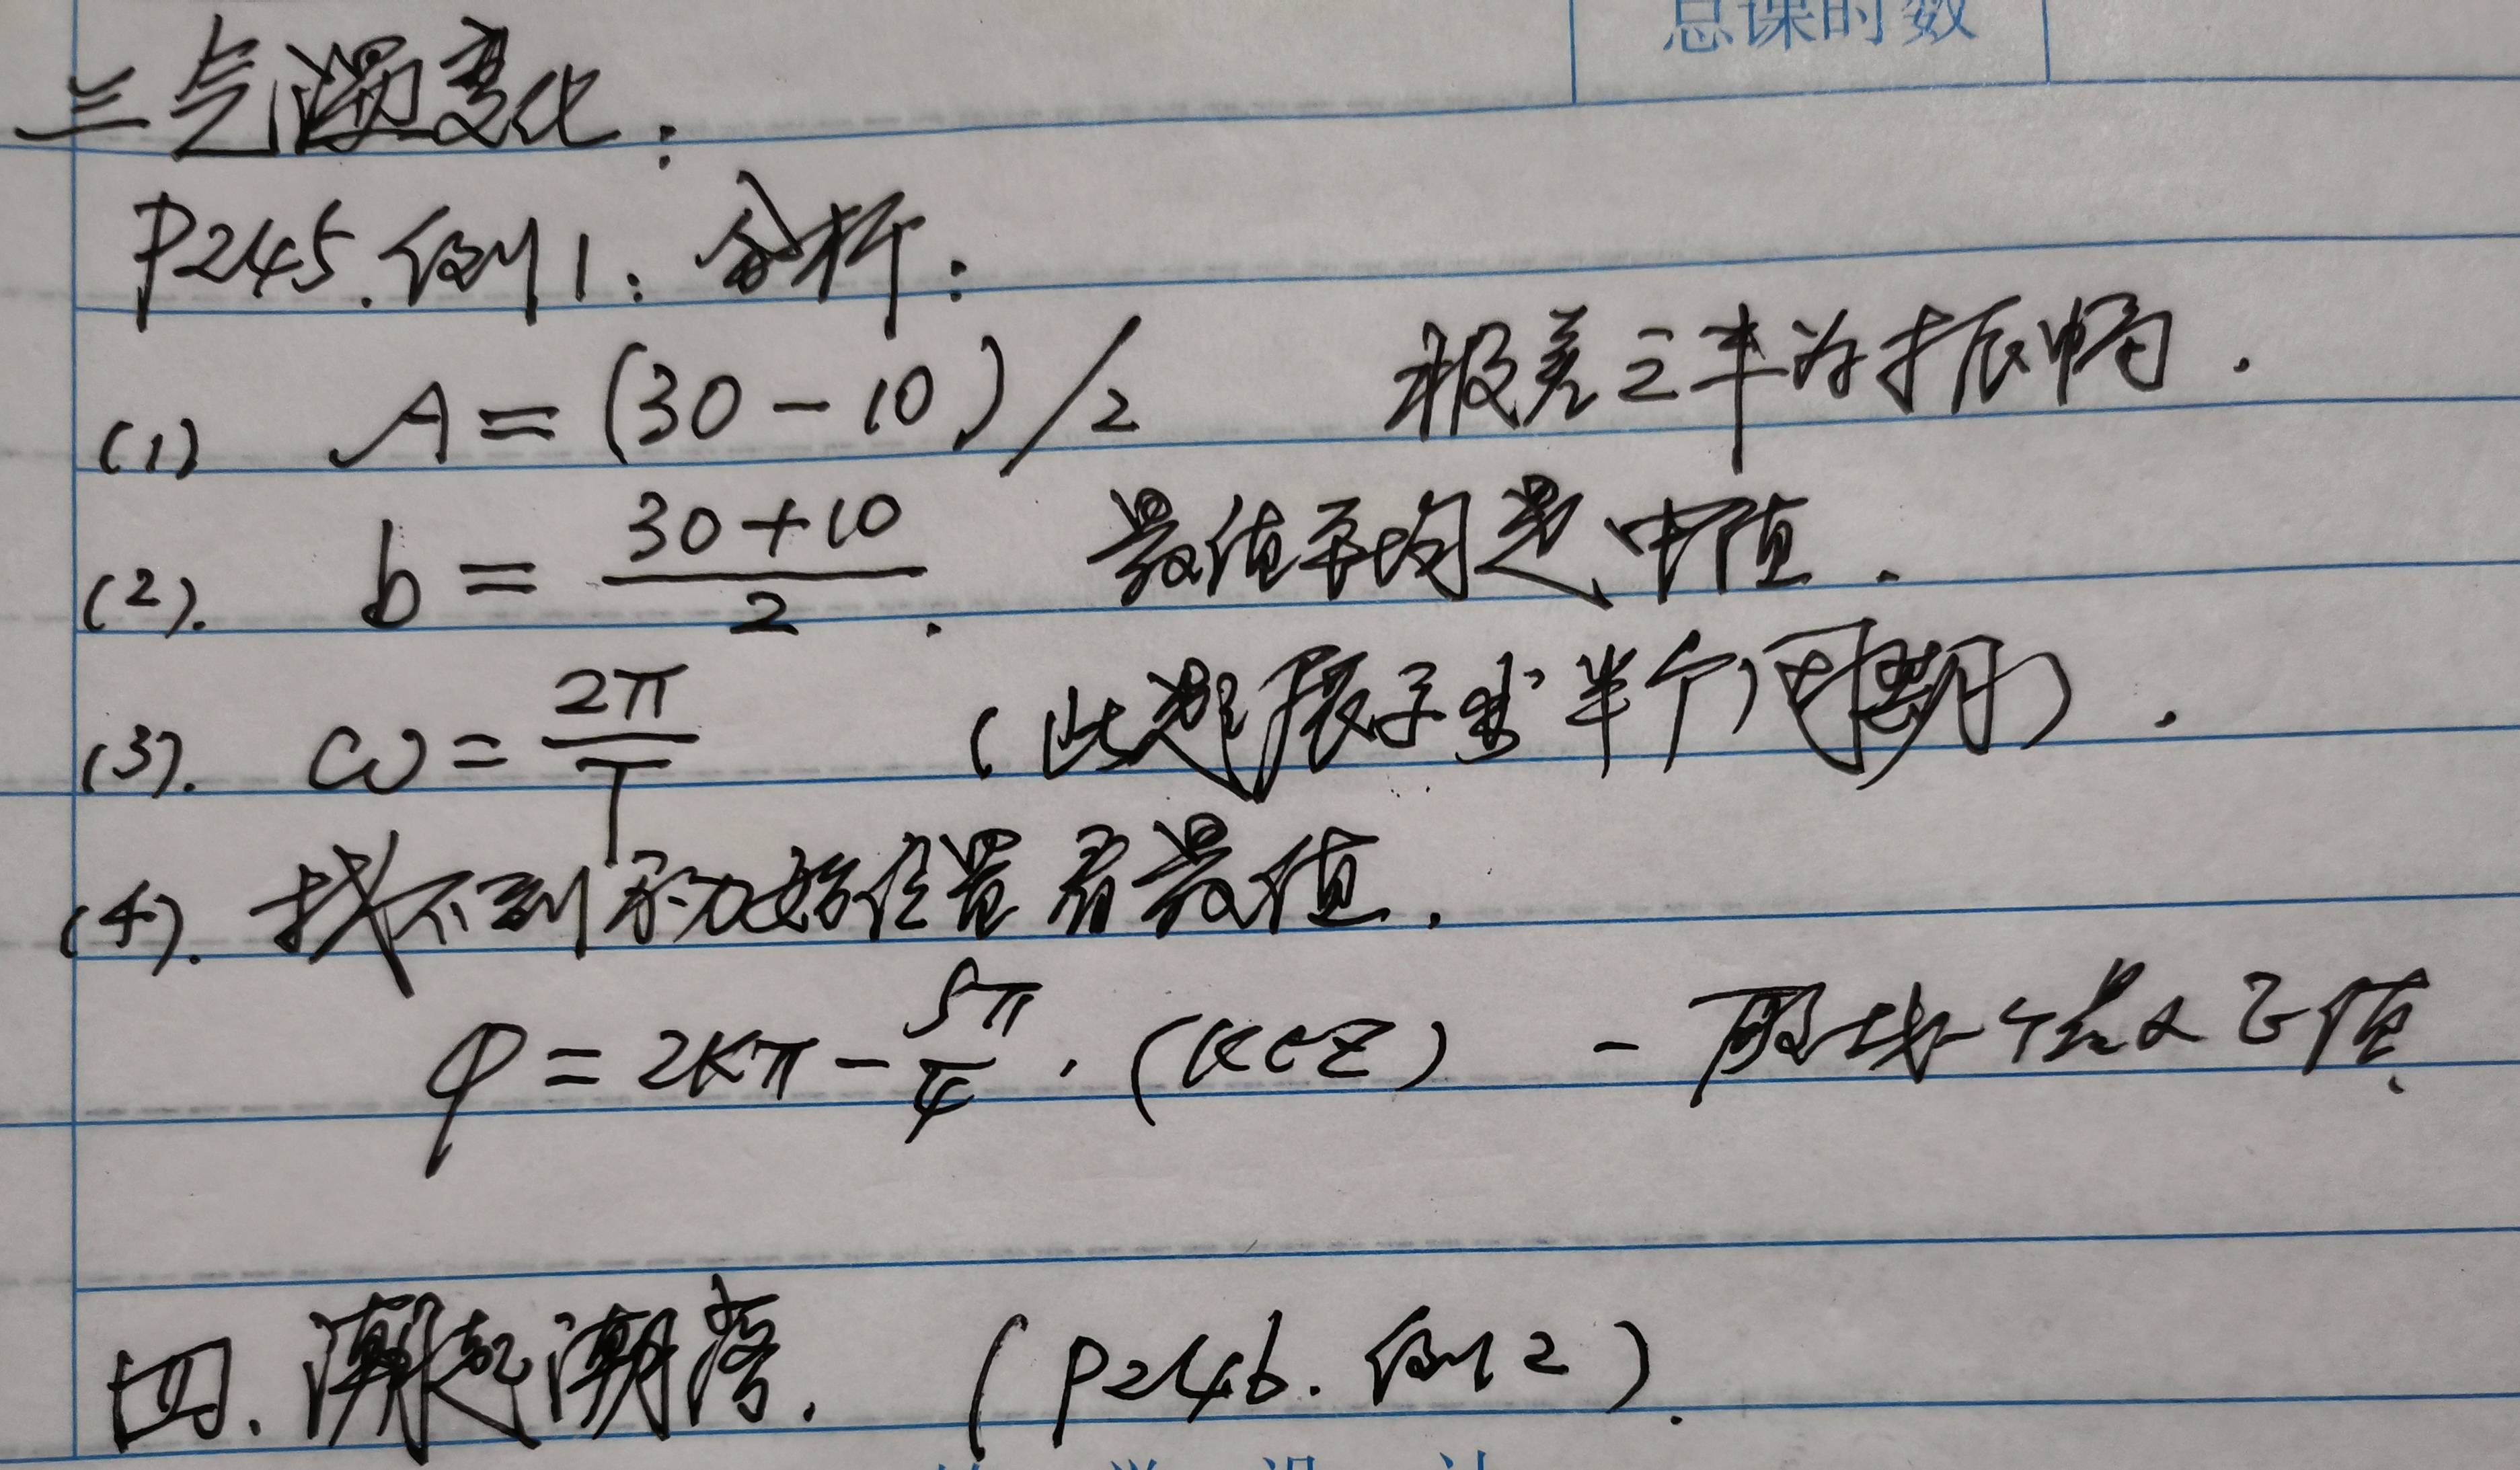 总课时数
三气温变化:
P245.例1:分析:
(1) A=(30-10)/2 极差之半为振幅.
(2). b=\frac{30+10}{2}. 最值平均是中值.
(3). ω=\frac{2π}{T} (此题振子 半个周期).
(4). 找不到初始位置看最值.
φ=2kπ-\frac{5π}{4}.(k∈Z) -般找个最 值
四.潮起潮落. (P246.例2).